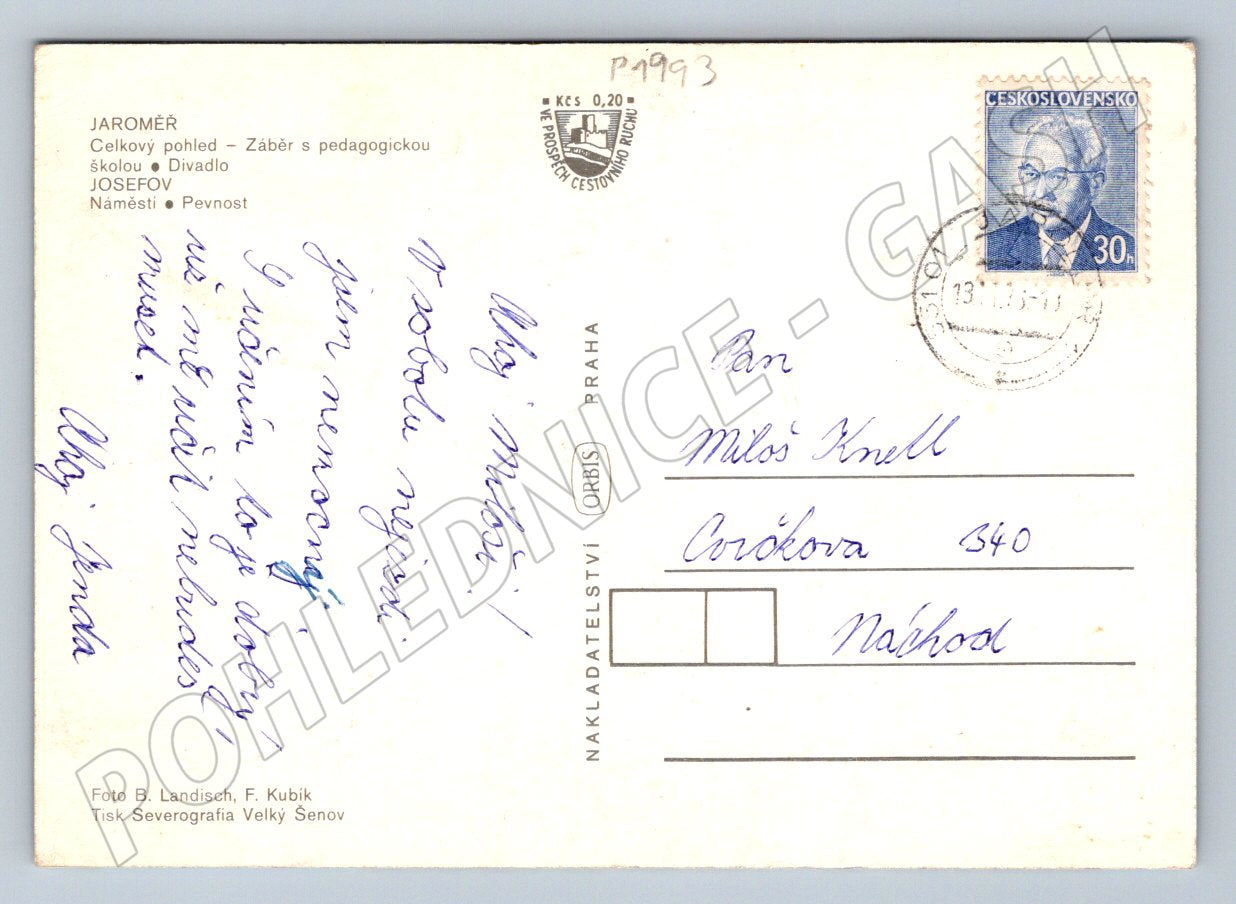 P1993
JAROMĚŘ
Celkový pohled – Záběr s pedagogickou
školou ● Divadlo
JOSEFOV
Náměstí ● Pevnost
Kčs 0,20
VE PROSPĚCH CESTOVNÍHO RUCHU
ČESKOSLOVENSKO
30h
Ahoj Miloši!
V sobotu nejedi.
jsem nemocný.
S učením to je dobrý!
už mě učit nebudeš
muset.
Ahoj Jenda
NAKLADATELSTVÍ ORBIS PRAHA
Pan
Miloš Knell
Cvrčkova 340
Náchod
Foto B. Landisch, F. Kubík
Tisk Severografia Velký Šenov
POHLEDNICE - GASH